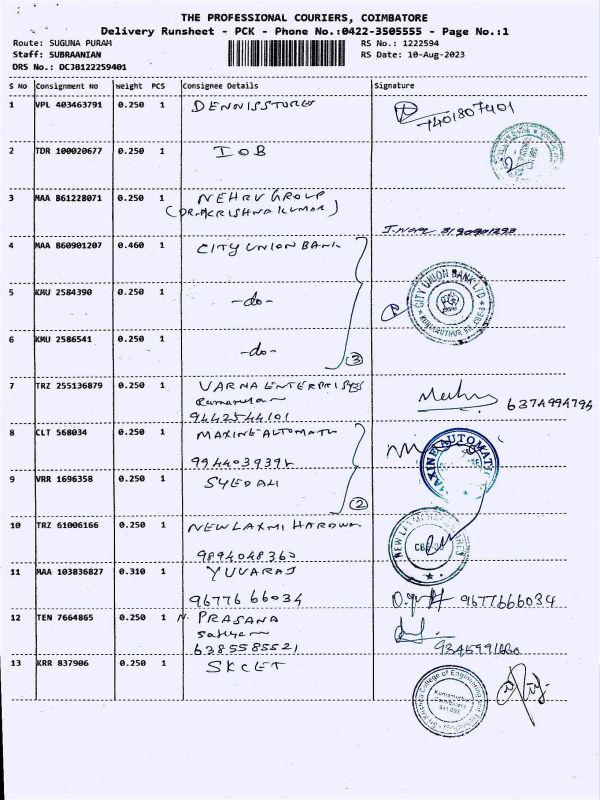 THE PROFESSIONAL COURIERS, COIMBATORE
Delivery Runsheet - PCK - Phone No.:0422-3505555 - Page No.:1
Route: SUGUNA PURAM RS No.: 1222594
Staff: SUBRAANIAN RS Date: 10-Aug-2023
DRS No.: DCJB122259401
S No Consignment No Weight PCS Consignee Details Signature
1 VPL 403463791 0.250 1 DENNISSTORES
7401807401
2 TDR 100020677 0.250 1 IOB
3 MAA 861228071 0.250 1 NEHRU GROUP
(DR.A.KRISHNAKUMAR)
4 MAA 860901207 0.460 1 CITY UNION BANK
CITY UNION BANK LTD
5 KMU 2584390 0.250 1 -do-
6 KMU 2586541 0.250 1 -do-
3
7 TRZ 255136879 0.250 1 VARNA ENTERPRISES
6374994794
9442544101
8 CLT 568034 0.250 1 MAXINE AUTOMATN
MAXINE AUTOMATY
9944039392
9 VRR 1696358 0.250 1 SYED ALI
2
10 TRZ 61006166 0.250 1 NEW LAXMI HARDWA
9894048363
11 MAA 103836827 0.310 1 YUVARAJ
96776 66034 9677666034
12 TEN 7664865 0.250 1 N. PRASANA
6385585521
13 KRR 837906 0.250 1 SKCET
Sri Krishna College of Engineering and Technology
Kuniamuthur
Coimbatore
641 008